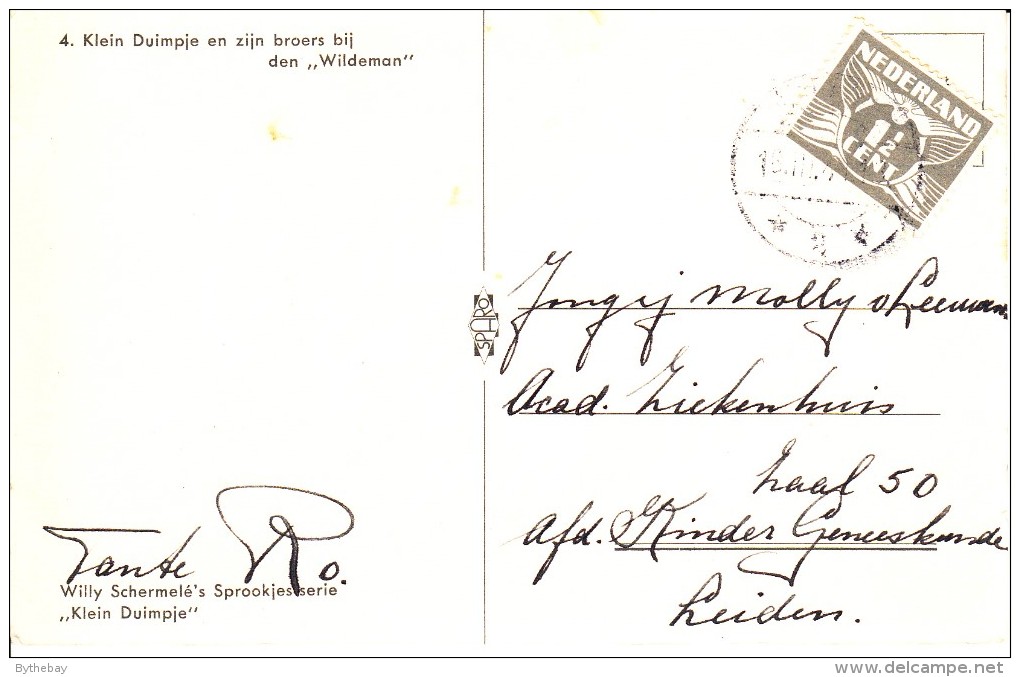 4. Klein Duimpje en zijn broers bij
den „Wildeman"
NEDERLAND
1½
CENT
SPARO
Molly v Leeman
Acad. Ziekenhuis
Zaal 50
Afd. Kinder Geneeskunde
Leiden.
Tante Ro.
Willy Schermelé's Sprookjesserie
„Klein Duimpje"
Bythebay
www.delcampe.net